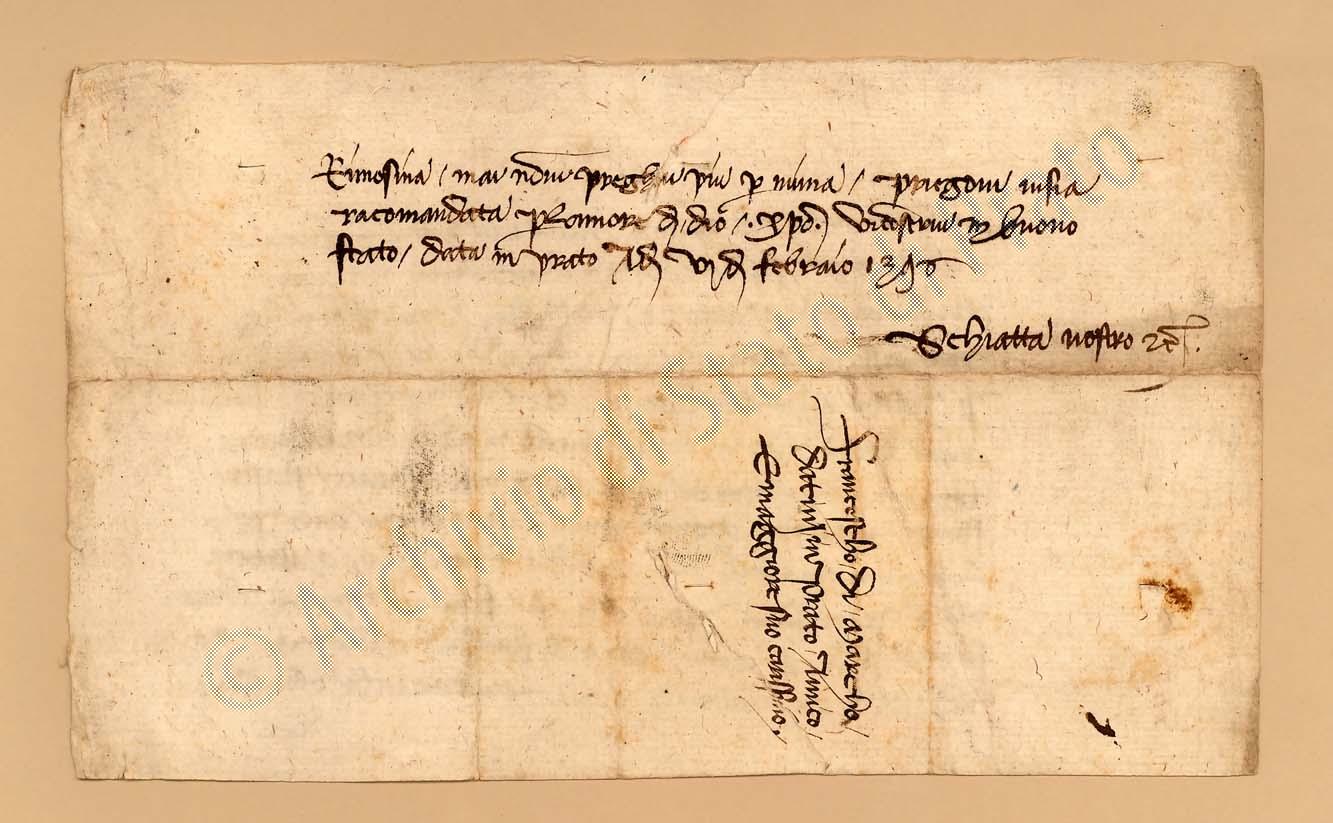 limosina / mai n diu preghiai piu p niuna / priegovi vi sia
racomandata p lamore di dio / . xpo . vi coservi in buono
stato / data in prato Adi vi di febraio 1396
Schiatta vostro
francescho di marcho
datini in prato / Amico
e maggiore suo carissimo .
© Archivio di Stato di Prato